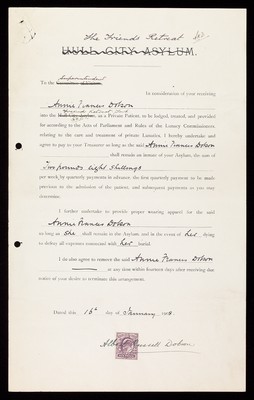 The Friends Retreat
HULL CITY ASYLUM.
To the Superintendent
In consideration of your receiving
Annie Frances Dobson
into the Friends Retreat, as a Private Patient, to be lodged, treated, and provided
for according to the Acts of Parliament and Rules of the Lunacy Commissioners
relating to the care and treatment of private Lunatics, I hereby undertake and
agree to pay to your Treasurer so long as the said Annie Frances Dobson
shall remain an inmate of your Asylum, the sum of
Two pounds eight shillings
per week, by quarterly payments in advance, the first quarterly payment to be made
previous to the admission of the patient, and subsequent payments as you may
determine.
I further undertake to provide proper wearing apparel for the said
Annie Frances Dobson
so long as she shall remain in the Asylum and in the event of her dying
to defray all expenses connected with her burial
I do also agree to remove the said Annie Frances Dobson
at any time within fourteen days after receiving due
notice of your desire to terminate this arrangement.
Dated this 15th day of January 190
Russell Dobson